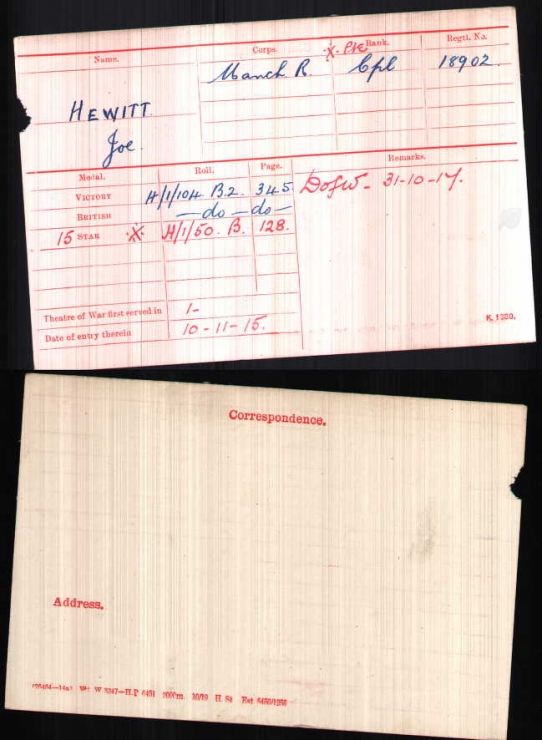 Name. Corps. ·X· Pte Rank. Regtl. No.
HEWITT Manch. R. Cpl 18902.
Joe.
Medal. Roll. Page. Remarks.
VICTORY H/1/104 B.2. 345 DofW - 31-10-17.
BRITISH — do — do —
15 STAR ·X· H/1/50. B. 128.
Theatre of War first served in 1-
Date of entry therein 10-11-15.
K. 1380.
Correspondence.
Address.